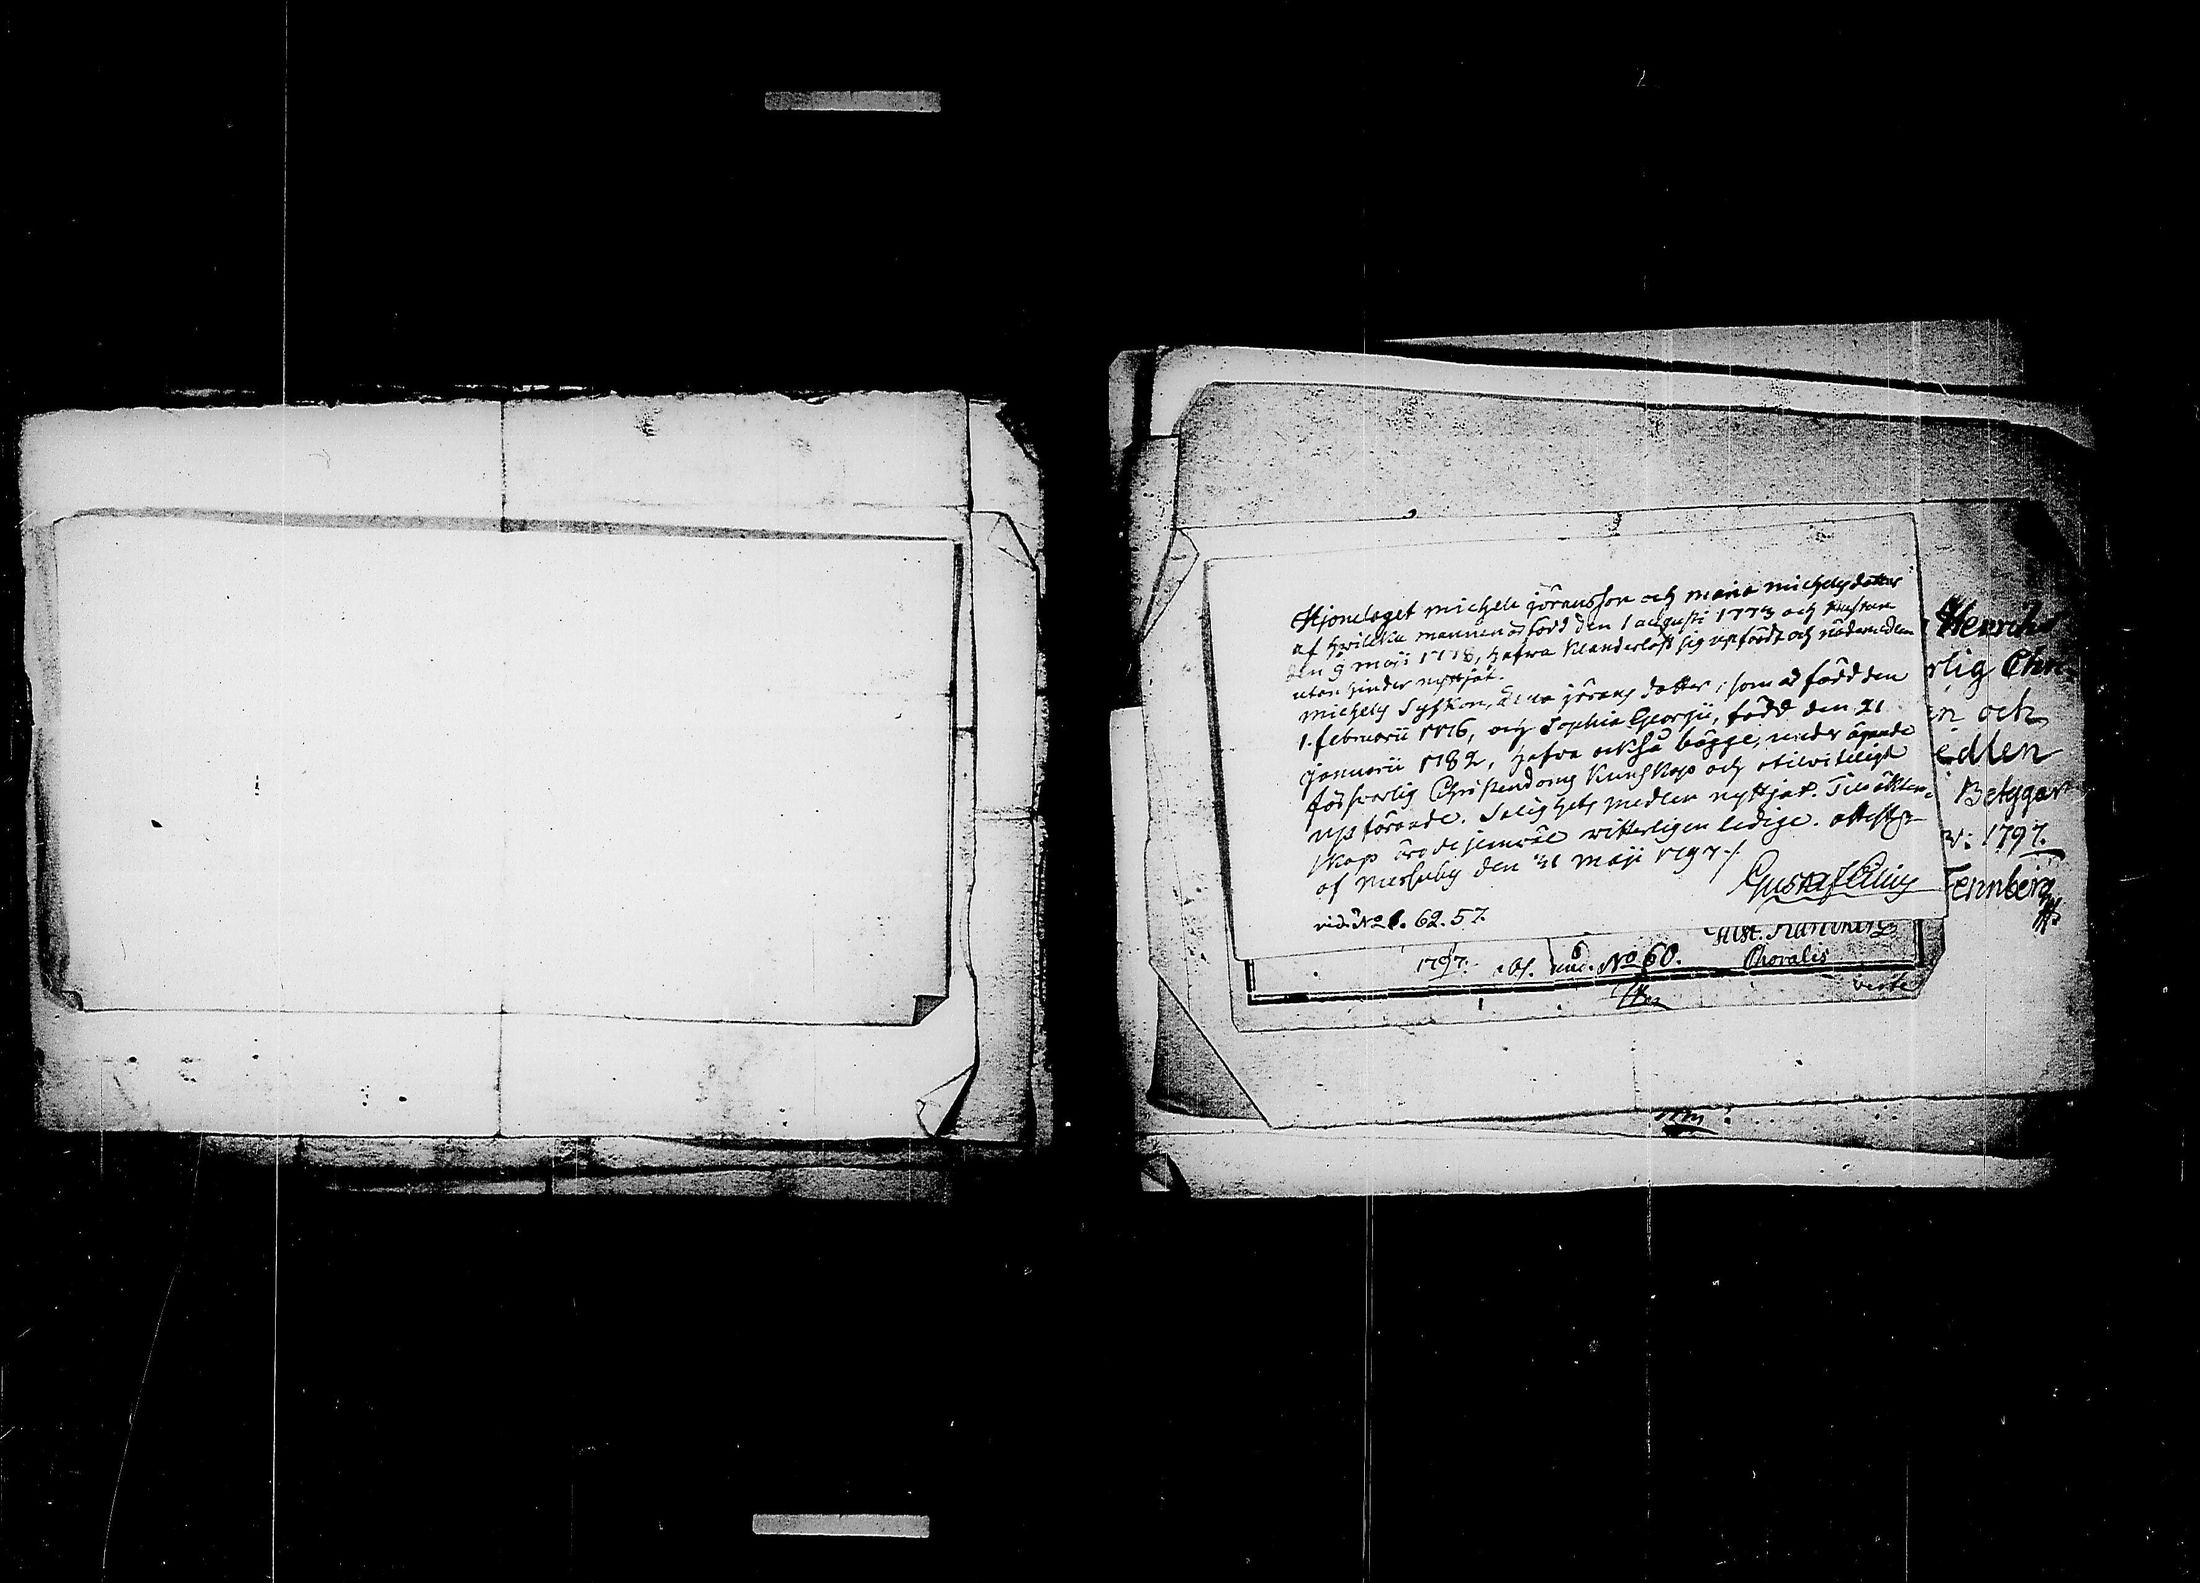 Hjonelaget michels jöransson och maria michelsdotter
af hvilka mannen är född den 1 augusti 1773 och hustrun
den 9 maji 1778, hafva klanderlöst sig upfördt och nådemedlen
utan hinder nyttjat.
michels Syskon, Lena jörans dotter, som är född den
1. februarii 1776, och Sophia Georgii, född den 21
januarii 1782, hafva också bägge, under ägande
försvarlig Christendoms kunskap och otilviteligt
upförande. Salighets medlen nyttjat. Til äkten-
skap äro de jemväl vitterligen ledige. attest:r
af Messuby den 31 maji 1797./.
Gustaf
vid: No 1. 62. 57.
1797. No 60. Choralis
verte
Henrichs
rlig Chri
n och
edlen
Betygar
1797.
Tennberg